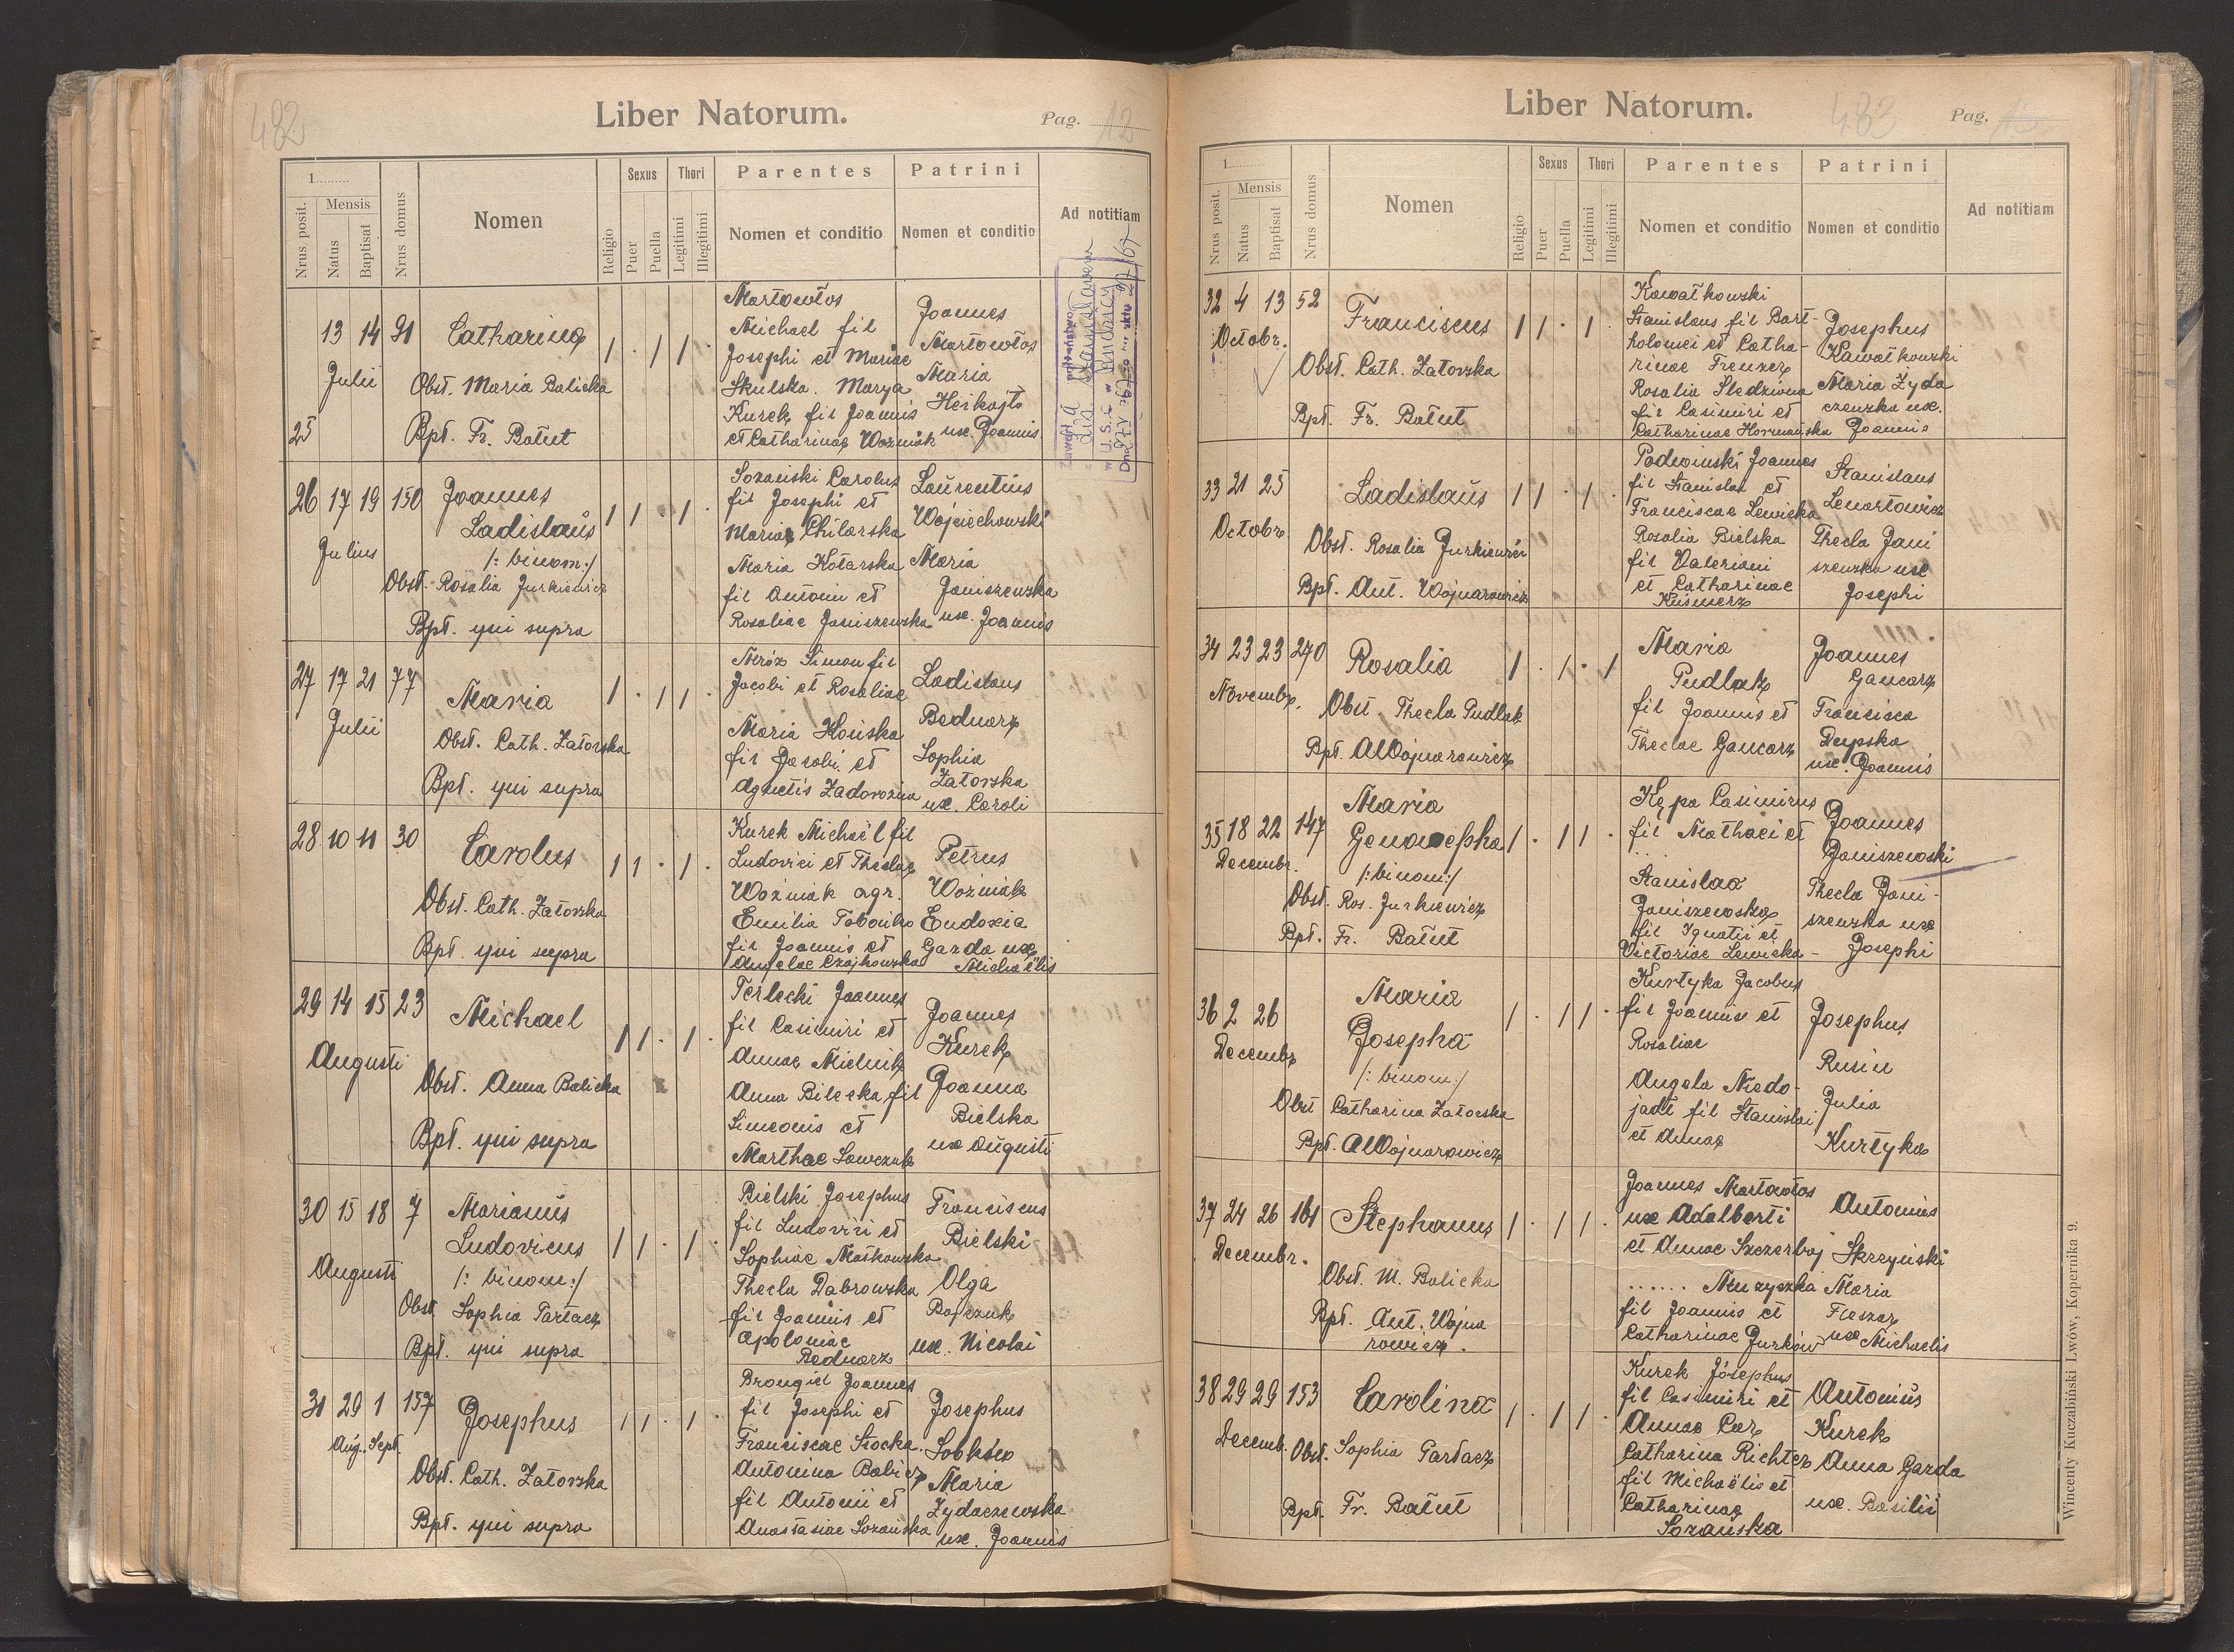 482
Liber Natorum.
Pag. 12
1
Nrus posit.
Mensis
Natus
Baptisat
Nrus domus
Nomen
Religio
Sexus
Puer
Puella
Thori
Legitimi
Illegitimi
Parentes
Nomen et conditio
Patrini
Nomen et conditio
Ad notitiam
25
13 14 91 Catharina
Julii
Obst. Maria Balicka
Bpt. Fr. Bałut
Martowłos
Michael fil
Josephi et Mariae
Skulska. Marya
Kurek fil Joannis
et Catharinae Woźniak
Joannes
Martowłos
Maria
ux. Joannis
26 17 19 150 Joannes
Ladislaus
Julius
/: binom:/
Obst. Rosalia Jurkiewicz
Bpt. qui supra
Sozański Carolus
fil Josephi et
Mariae
Maria Kotarska
fil Antonii et
Rosaliae Janiszewska
Laurentius
Wojciechowski
Maria
Janiszewska
ux. Joannis
27 17 21 77
Maria
Julii
Obst. Cath. Zatorska
Bpt. qui supra
Mróz Simon fil
Jacobi et Rosaliae
Maria
fil Jacobi et
Agnetis
Ladislaus
Bednarz
Sophia
Zatorska
ux. Caroli
28 10 11 30
Carolus
Obst. Cath. Zatorska
Bpt. qui supra
Kurek Michaël fil
Ludovici et Theclae
Woźniak agr.
Emilia
fil Joannis et
Angelae Czajkowska
Petrus
Woźniak
Eudoxia
Gazda ux
Michaëlis
29 14 15 23
Michael
Augusti
Obst. Anna Balicka
Bpt. qui supra
Terlecki Joannes
fil Casimiri et
Annae Mielnik
Anna Bilecka fil
Simeonis et
Marthae Sawczuk
Joannes
Kurek
Joanna
Bielska
ux Augusti
30 15 18 7 Marianus
Ludovicus
Augusti
/: binom:/
Obst Sophia Partacz
Bpt. qui supra
Bielski Josephus
fil Ludovici et
Sophiae
Thecla Dąbrowska
fil Joannis et
Apoloniae
Bednarz
Franciscus
Bielski
Olga
Bojczuk
ux. Nicolai
31 29 1 157
Josephus
Aug. Sept.
Obst. Cath. Zatorska
Bpt. qui supra
Brongiel Joannes
fil Josephi et
Franciscae Stocka
Antonina Babicz
fil Antonii et
Anastasiae Sozańska
Josephus
Sobków
Maria
Żydaczewska
ux. Joannis
Liber Natorum.
483
Pag. 13
1
Nrus posit.
Mensis
Natus
Baptisat
Nrus domus
Nomen
Religio
Sexus
Puer
Puella
Thori
Legitimi
Illegitimi
Parentes
Nomen et conditio
Patrini
Nomen et conditio
Ad notitiam
32 4 13 52
Franciscus
Octobr.
Obst. Cath. Zatorska
Bpt. Fr. Bałut
Kawałkowski
Stanislaus fil Bart-
holomei et Catha-
rinae
Rosalia
fil Casimiri et
Catharinae
Josephus
Kawałkowski
Maria Żyda
czewska ux.
Joannis
33 21 25
Ladislaus
Octobr
Obst. Rosalia Jurkiewicz
Bpt. Ant. Wojnarowicz
Podwinski Joannes
fil Stanislai et
Franciscae Lewicka
Rosalia Bielska
fil Valeriani
et Catharinae
Kuśnierz
Stanislaus
Lenartowicz
Thecla Jani
szewska ux
Josephi
34 23 23 240
Rosalia
Novembr.
Obst. Thecla Pudlak
Bpt. AWojnarowicz
Maria
Pudlak
fil Joannis et
Theclae Gancarz
Joannes
Gancarz
Francisca
ux. Joannis
35 18 22 147
Maria
Genowepha
Decembr.
/: binom:/
Obst. Ros. Jurkiewicz
Bpt. Fr. Bałut
Kępa Casimirus
fil Mathaei et
. . .
Stanislaa
Janiszewska
fil Ignatii et
Victoriae Lewicka
Joannes
Janiszewski
Thecla Jani-
szewska ux
Josephi
36 2 26
Maria
Josepha
Decembr
/: binom:/
Obst Catharina Zatorska
Bpt. AWojnarowicz
Kurtyka Jacobus
fil Joannis et
Rosaliae
Angela Niedo-
jadł fil Stanislai
et Annae
Josephus
Rusin
Julia
Kurtyka
37 24 26 161
Stephanus
Decembr.
Obst. M. Balicka
Bpt. Ant. Wojna
rowicz.
Joannes Martowłos
ux Adalberti
et Annae Szczerbaj
. . . . . . Muzyczka
fil Joannis et
Catharinae Jurków
Antonius
Skrzyński
Maria
Fleszar
ux Michaelis
38 29 29 153
Carolina
Decemb.
Obst. Sophia Partacz
Bpt. Fr. Bałut
Kurek Josephus
fil Casimiri et
Annae
Catharina Richter
fil Michaëlis et
Catharinae
Sozańska
Antonius
Kurek
Anna Gazda
ux. Basilii
Wincenty Kuczabiński Lwów, Kopernika 9.